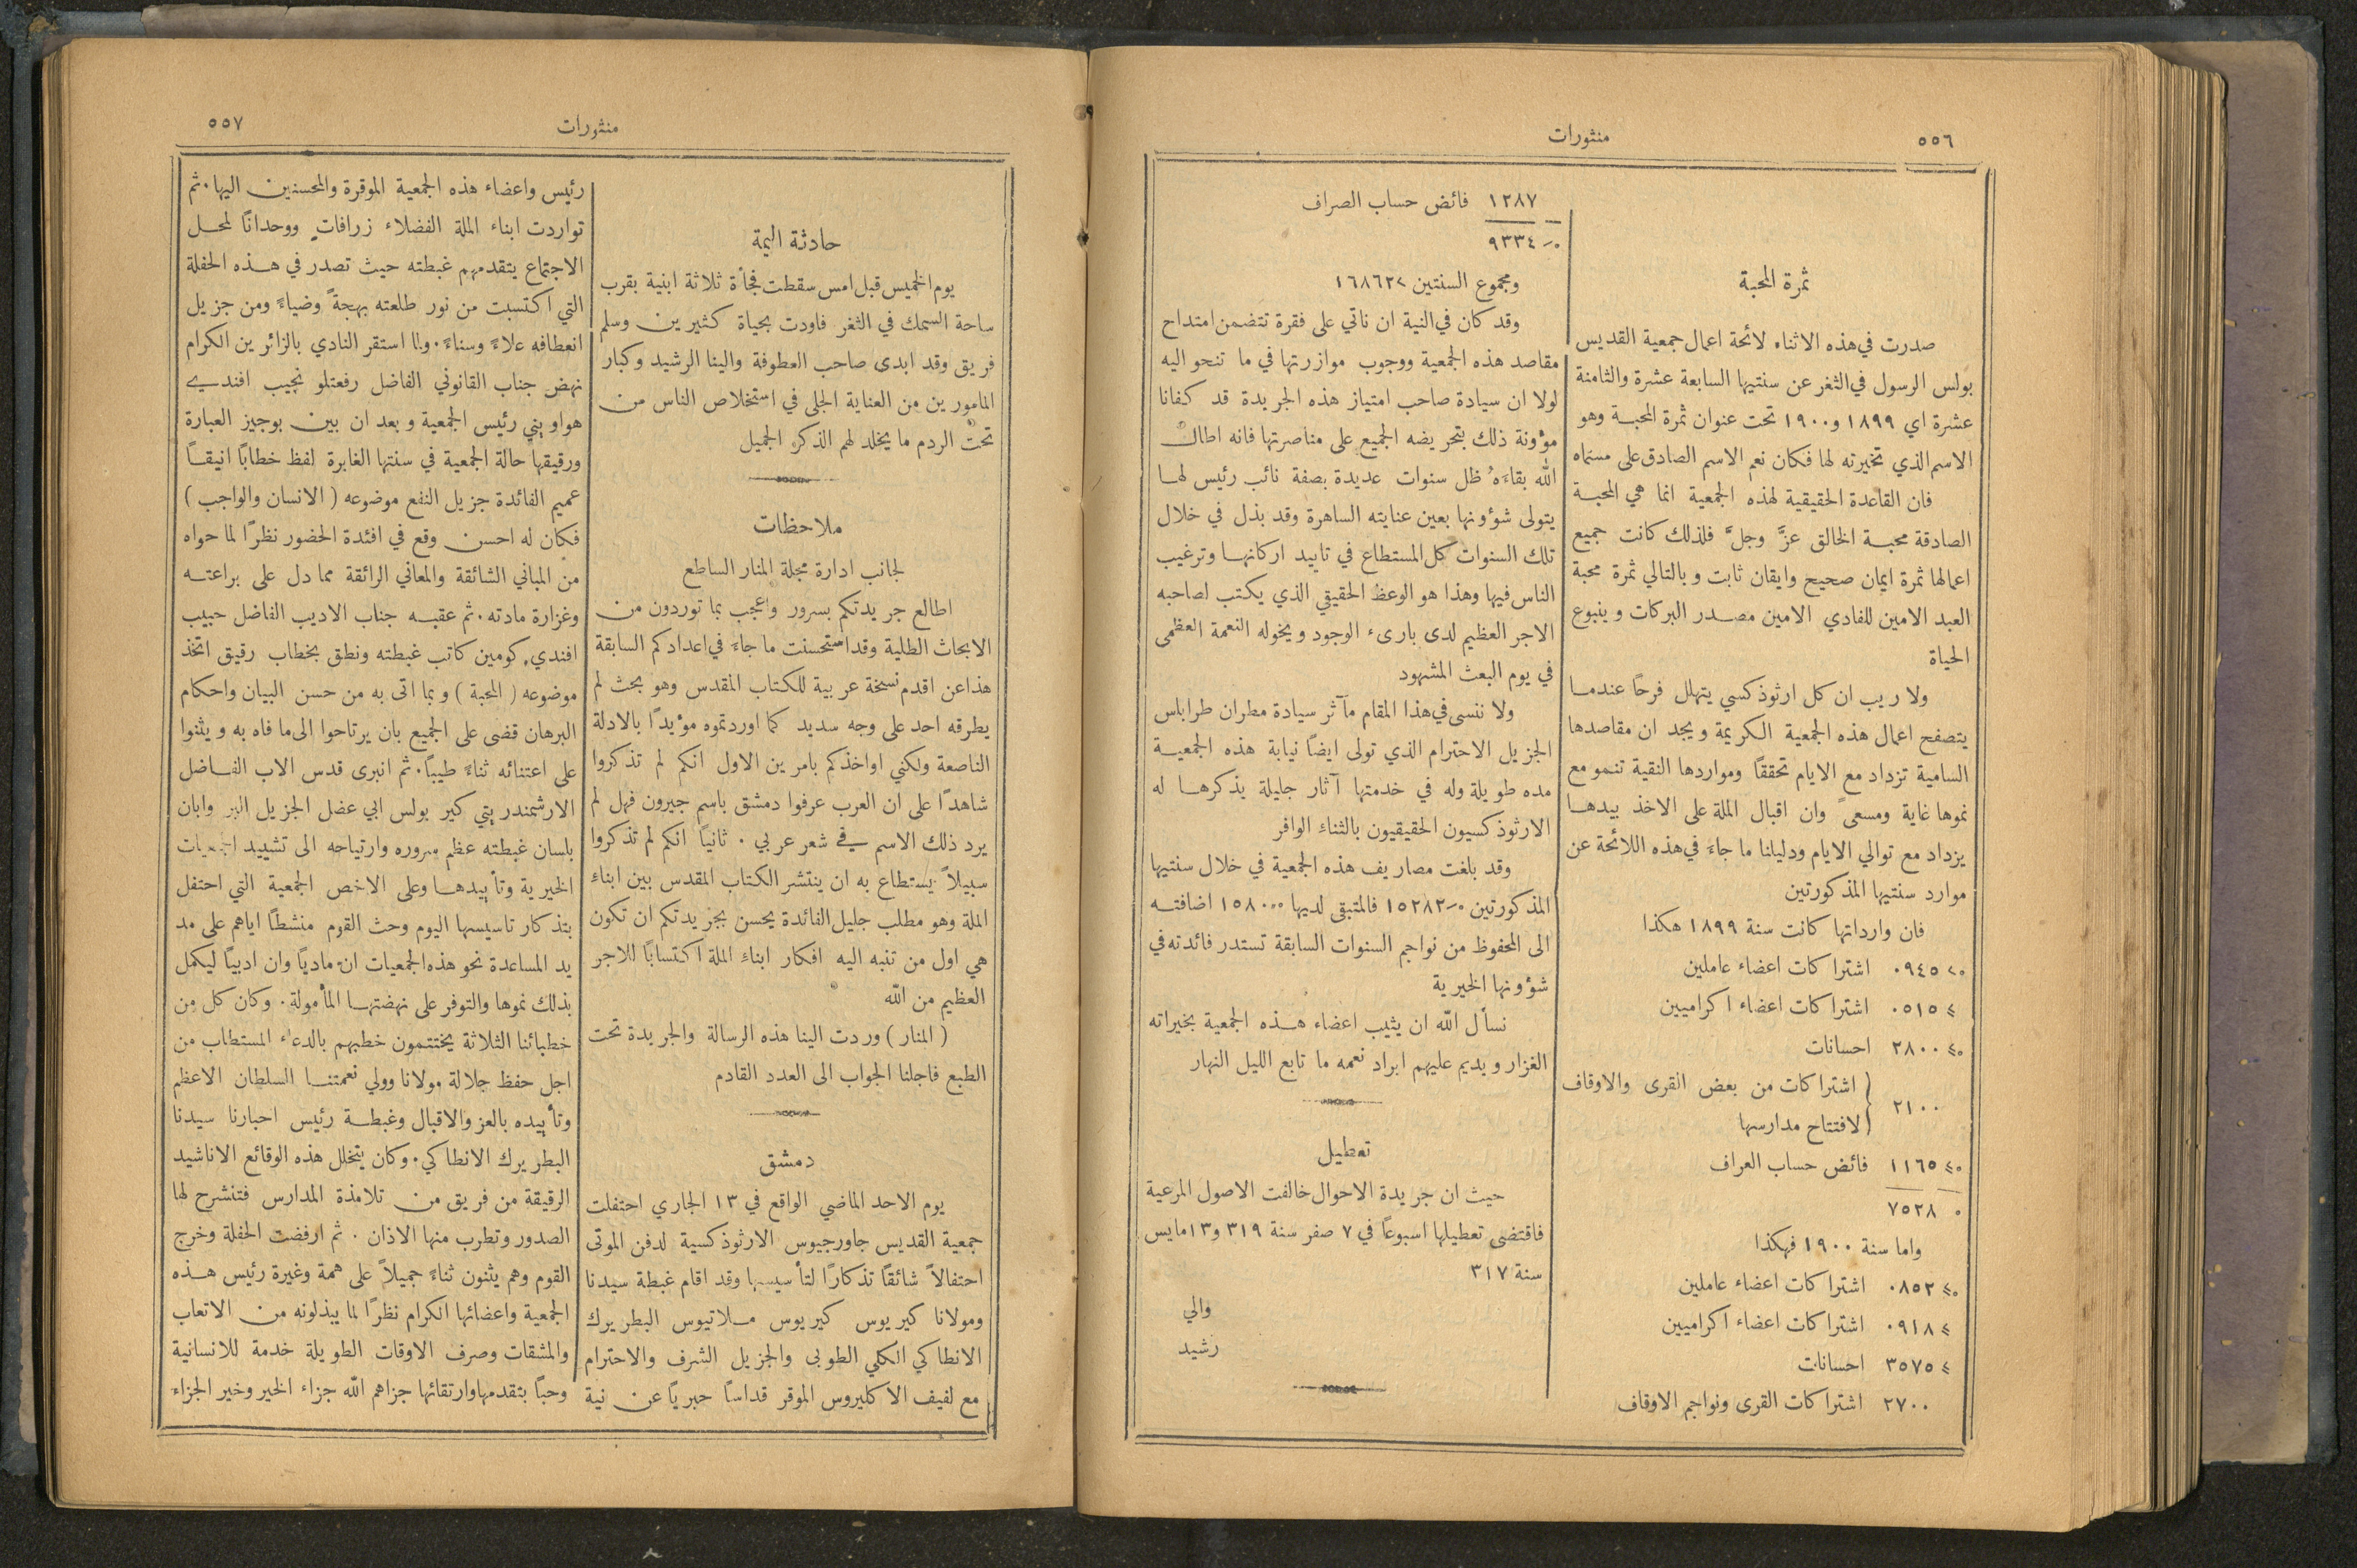 ٥٥٦
منثورات
ثمرة المحبة
صدرت في هذه الاثناء لائحة اعمال جمعية القديس
بولس الرسول في الثغر عن سنتيها السابعة عشرة والثامنة
عشرة اي ١٨٩٩ و١٩٠٠ تحت عنوان ثمرة المحبة وهو
الاسم الذي تخيرته لها فكان نعم الاسم الصادق على مسماه
فان القاعدة الحقيقية لهذه الجمعية انما هي المحبة
الصادقة محبة الخالق عزَّ وجلَّ فلذلك كانت جميع
اعمالها ثمرة ايمان صحيح وايقان ثابت وبالتالي ثمرة محبة
العبد الامين للفادي الامين مصدر البركات وينبوع
الحياة
ولا ريب ان كل ارثوذكسي يتهلل فرحًا عندما
يتصفح اعمال هذه الجمعية الكريمة ويجد ان مقاصدها
السامية تزداد مع الايام تحققًا ومواردها النقية تنمو مع
نموها غاية ومسعىً وان اقبال الملة على الاخذ بيدها
يزداد مع توالي الايام ودليلنا ما جاءَ في هذه اللائحة عن
موارد سنتيها المذكورتين
فان وارداتها كانت سنة ١٨٩٩ هكذا
٠٩٤٥ اشتراكات اعضاء عاملين
٠٥١٥ اشتراكات اعضاء اكراميين
٢٨٠٠ احسانات
٢١٠٠ اشتراكات من بعض القرى والاوقاف
لافتتاح مدارسها
١١٦٥ فائض حساب العراف
٧٥٢٨
واما سنة ١٩٠٠ فهكذا
٠٨٥٢ اشتراكات اعضاء عاملين
٠٩١٨ اشتراكات اعضاء اكراميين
٣٥٧٥ احسانات
٢٧٠٠ اشتراكات القرى ونواجم الاوقاف
١٢٨٧ فائض حساب الصراف
٩٣٣٤
ومجموع السنتين ١٦٨٦٢
وقد كان في النية ان ناتي على فقرة تتضمن امتداح
مقاصد هذه الجمعية ووجوب موازرتها في ما تنحو اليه
لولا ان سيادة صاحب امتياز هذه الجريدة قد كفانا
مؤونة ذلك بتحريضه الجميع على مناصرتها فانه اطال
الله بقاءَهُ ظل سنوات عديدة بصفة نائب رئيس لها
يتولى شؤونها بعين عنايته الساهرة وقد بذل في خلال
تلك السنوات كل المستطاع في تاييد اركانها وترغيب
الناس فيها وهذا هو الوعظ الحقيقي الذي يكتب لصاحبه
الاجر العظيم لدى بارىء الوجود ويخوله النعمة العظمى
في يوم البعث المشهود
ولا ننسى في هذا المقام مآثر سيادة مطران طرابلس
الجزيل الاحترام الذي تولى ايضًا نيابة هذه الجمعية
مده طويلة وله في خدمتها آثار جليلة يذكرها له
الارثوذكسيون الحقيقيون بالثناء الوافر
وقد بلغت مصاريف هذه الجمعية في خلال سنتيها
المذكورتين ١٥٢٨٢ فالمتبقى لديها ١٥٨٠ اضافته
الى المحفوظ من نواجم السنوات السابقة تستدر فائدته في
شؤونها الخيرية
نسأل الله ان يثيب اعضاء هذه الجمعية بخيراته
الغزار ويديم عليهم ابراد نعمه ما تابع الليل النهار
تعطيل
حيث ان جريدة الاحوال خالفت الاصول المرعية
فاقتضى تعطيلها اسبوعًا في ٧ صفر سنة ٣١٩ و١٣ مايس
سنة ٣١٧
والي
رشيد
منثورات
٥٥٧
حادثة اليمة
يوم الخميس قبل امس سقطت فجأة ثلاثة ابنية بقرب
ساحة السمك في الثغر فاودت بحياة كثيرين وسلم
فريق وقد ابدى صاحب العطوفة والينا الرشيد وكبار
المامورين من العناية الجلى في استخلاص الناس من
تحت الردم ما يخلد لهم الذكر الجميل
ملاحظات
لجانب ادارة مجلة المنار الساطع
اطالع جريدتكم بسرور واعجب بما توردون من
الابحاث الطلية وقد استحسنت ما جاءَ في اعدادكم السابقة
هذا عن اقدم نسخة عربية للكتاب المقدس وهو بحث لم
يطرقه احد على وجه سديد كما اوردتموه مؤيدًا بالادلة
الناصعة ولكني اواخذكم بامرين الاول انكم لم تذكروا
شاهدًا على ان العرب عرفوا دمشق باسم جيرون فهل لم
يرد ذلك الاسم في شعر عربي . ثانيًا انكم لم تذكروا
سبيلاً يستطاع به ان ينتشر الكتاب المقدس بين ابناءِ
الملة وهو مطلب جليل الفائدة يحسن بجريدتكم ان تكون
هي اول من تنبه اليه افكار ابناءِ الملة اكتسابًا للاجر
العظيم من الله
( المنار ) وردت الينا هذه الرسالة والجريدة تحت
الطبع فاجلنا الجواب الى العدد القادم
دمشق
يوم الاحد الماضي الواقع في ١٣ الجاري احتفلت
جمعية القديس جاورجيوس الارثوذكسية لدفن الموتى
احتفالاً شائقًا تذكارًا لتأسيسها وقد اقام غبطة سيدنا
ومولانا كيريوس كيريوس ملاتيوس البطريرك
الانطاكي الكلي الطوبى والجزيل الشرف والاحترام
مع لفيف الاكليروس الموقر قداسًا حبريًا عن نية
رئيس واعضاء هذه الجمعية الموقرة والمحسنين اليها . ثم
تواردت ابناء الملة الفضلاء زرافاتٍ ووحدانًا لمحل
الاجتماع يتقدمهم غبطته حيث تصدر في هذه الحفلة
التي اكتسبت من نور طلعته بهجةً وضياءً ومن جزيل
انعطافه علاءً وسناءً . ولما استقر النادي بالزائرين الكرام
نهض جناب القانوني الفاضل رفعتلو نجيب افندي
هواويني رئيس الجمعية وبعد ان بين بوجيز العبارة
ورقيقها حالة الجمعية في سنتها الغابرة لفظ خطابًا انيقًا
عميم الفائدة جزيل النفع موضوعه ( الانسان والواجب )
فكان له احسن وقع في افئدة الحضور نظرًا لما حواه
من المباني الشائقة والمعاني الرائقة مما دل على براعته
وغزارة مادته . ثم عقبه جناب الاديب الفاضل حبيب
افندي كومين كاتب غبطته ونطق بخطاب رقيق اتخذ
موضوعه ( المحبة ) وبما اتى به من حسن البيان واحكام
البرهان قضى على الجميع بان يرتاحوا الى ما فاه به ويثنوا
على اعتنائه ثناءً طيبًا . ثم انبرى قدس الاب الفاضل
الارشمندريتي كير بولس ابي عضل الجزيل البر وابان
بلسان غبطته عظم سروره وارتياحه الى تشييد الجمعيات
الخيرية وتأييدها وعلى الاخص الجمعية التي احتفل
بتذكار تاسيسها اليوم وحث القوم منشطًا اياهم على مد
يد المساعدة نحو هذه الجمعيات ان ماديًا وان ادبيًا ليكمل
بذلك نموها والتوفر على نهضتها المأمولة . وكان كل من
خطبائنا الثلاثة يختتمون خطبهم بالدعاء المستطاب من
اجل حفظ جلالة مولانا وولي نعمتنا السلطان الاعظم
وتأييده بالعز والاقبال وغبطة رئيس احبارنا سيدنا
البطريرك الانطاكي . وكان يتخلل هذه الوقائع الاناشيد
الرقيقة من فريق من تلامذة المدارس فتنشرح لها
الصدور وتطرب منها الاذان . ثم ارفضت الحفلة وخرج
القوم وهم يثنون ثناءً جميلاً على همة وغيرة رئيس هذه
الجمعية واعضائها الكرام نظرًا لما يبذلونه من الاتعاب
والمشقات وصرف الاوقات الطويلة خدمة للانسانية
وحبًا بتقدمها وارتقائها جزاهم الله جزاء الخير وخير الجزاء